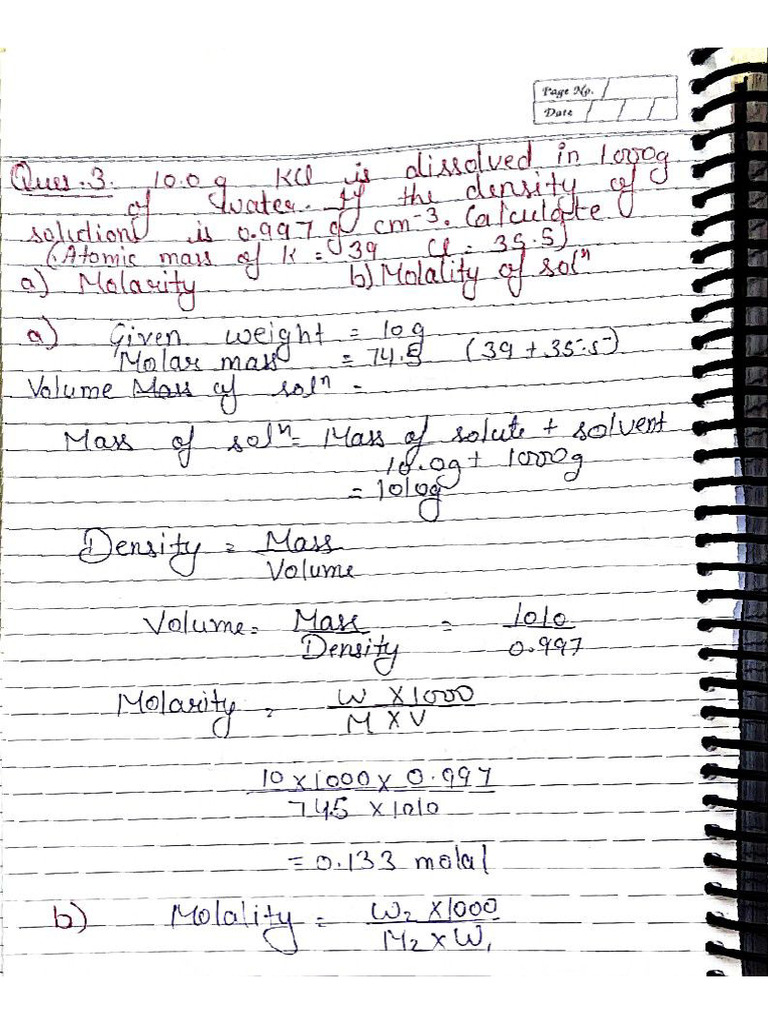 Page No.
Date
Ques. 3. 10.0 g KCl is dissolved in 1000g
of water. If the density of
solution is 0.997 g cm-3. Calculate
(Atomic mass of K = 39 Cl = 35.5)
a) Molarity b) Molality of solⁿ
a) Given weight = 10g
Molar mass = 74.5 (39 + 35.5)
Volume Mass of solⁿ =
Mass of solⁿ = Mass of solute + solvent
10.0g + 1000g
= 1010g
Density = Mass
Volume
Volume = Mass = 1010
Density 0.997
Molarity = W X 1000
M X V
10 X 1000 X 0.997
745 X 1010
= 0.133 molal
b) Molality = W₂ X 1000
M₂ X W₁